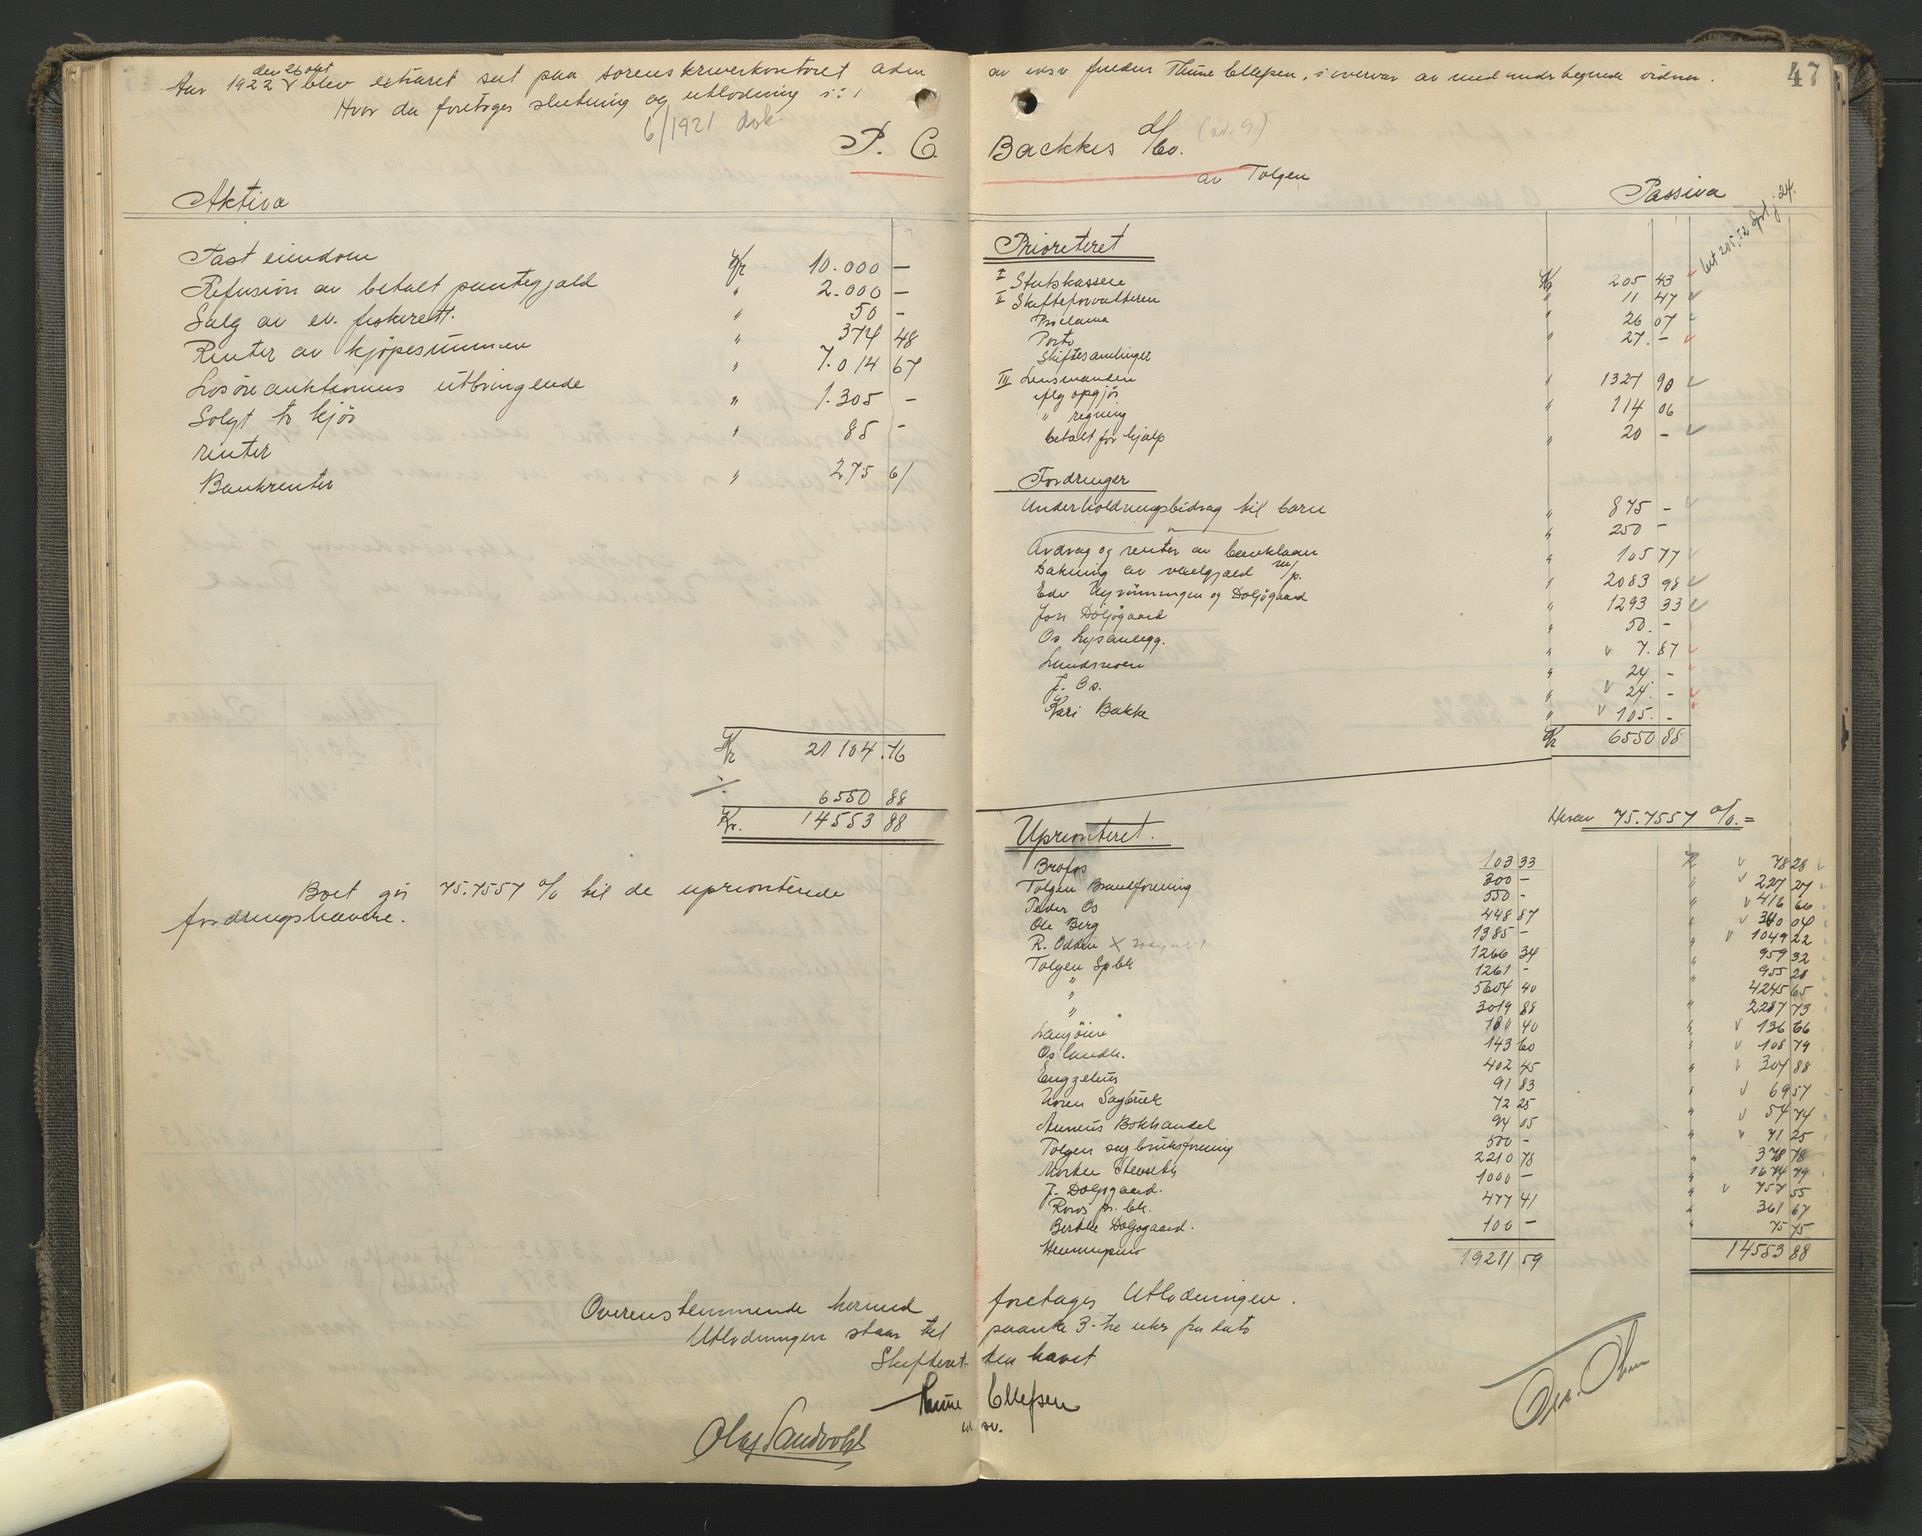 47
Aar 1922 den 26 okt blev extraret sat paa sorenskriverkontoret adm av Thune Ellefsen, i overvær av med undertegnede vidner.
Hvor da foretoges slutning og utlodning i:
6/1921 dok
P. C. Backkes d/bo. (nr. 9.)
av Tolgen
Aktiva
Fast eiendom Kr 10.000 —
Refusion av betalt pantegjæld " 2.000 —
Salg av ev. fiskerett. " 50 -
Renter av kjøpesummen " 374 48
Løsøreauktionens utbringende " 7.014 67
Solgt to kjør " 1.305 -
renter " 85 -
Bankrenter " 275 61
Kr 21104.76
÷ 6550 88
Kr. 14553 88
Boet gir 75.7557 % til de uprioriterede
fordringshavere.
Passiva
Prioriteret
I Statskassen Kr 205 43
II Skifteforvalteren " 11 47
Proclama 26 07
Porto " 27. -
Skiftesamlinger
III Lensmanden " 1327 90
Afg opgjör " 114 06
" regning
betalt for hjælp " 20 -
Fordringer
Underholdningsbidrag til barn " 875 -
" " 250 -
Avdrag og renter av banklaan " 105 77
Dækning av vexelgjæld m/p. " 2083 98
Edv Nyrönningen og Doljögaard " 1293 33
Jon Doljögaard " 50. -
Os Lysanlegg. " 7.87
Lundsmoen " 24. -
J. Os. " 24. -
Kari Bakke " 105. -
Kr 6550 88
Uprioriteret.
Herav 75.7557 %. =
Brofos 103 33 Kr 78 28
Tolgen Brandforening 300 - " 227 27
Peder Os 550 - " 416 66
Ole Berg 448 87 " 340 04
R. Odden 1385 - " 1049 22
Tolgen Spbk 1266 34 " 959 32
" 1261 - " 955 28
" 5604 40 4245 65
" 3019 88 " 2287 73
Langöien 180 40 " 136 66
Os landh. 143 60 " 108 79
Engzelius 402 45 " 304 88
Noren Sagbruk 91 83 " 69 57
Aumus Bokhandel 72 25 " 54 74
Tolgen sagbruksforening 94 05 " 71 25
Morten Stenseth 500 - " 378 78
J. Doljögaard. 2210 78 1674 79
Roros pr. bk. 1000 - " 757 55
Berthe Doljögaard. 477 41 " 361 67
100 - " 75 75
19211 59 14553 88
Overenstemmende hermed foretages Utlodningen.
Utlodningen staar til paanke 3-tre uker fra dato
Skifteretten hævet
Thune Ellefsen
Olaf Sandvold